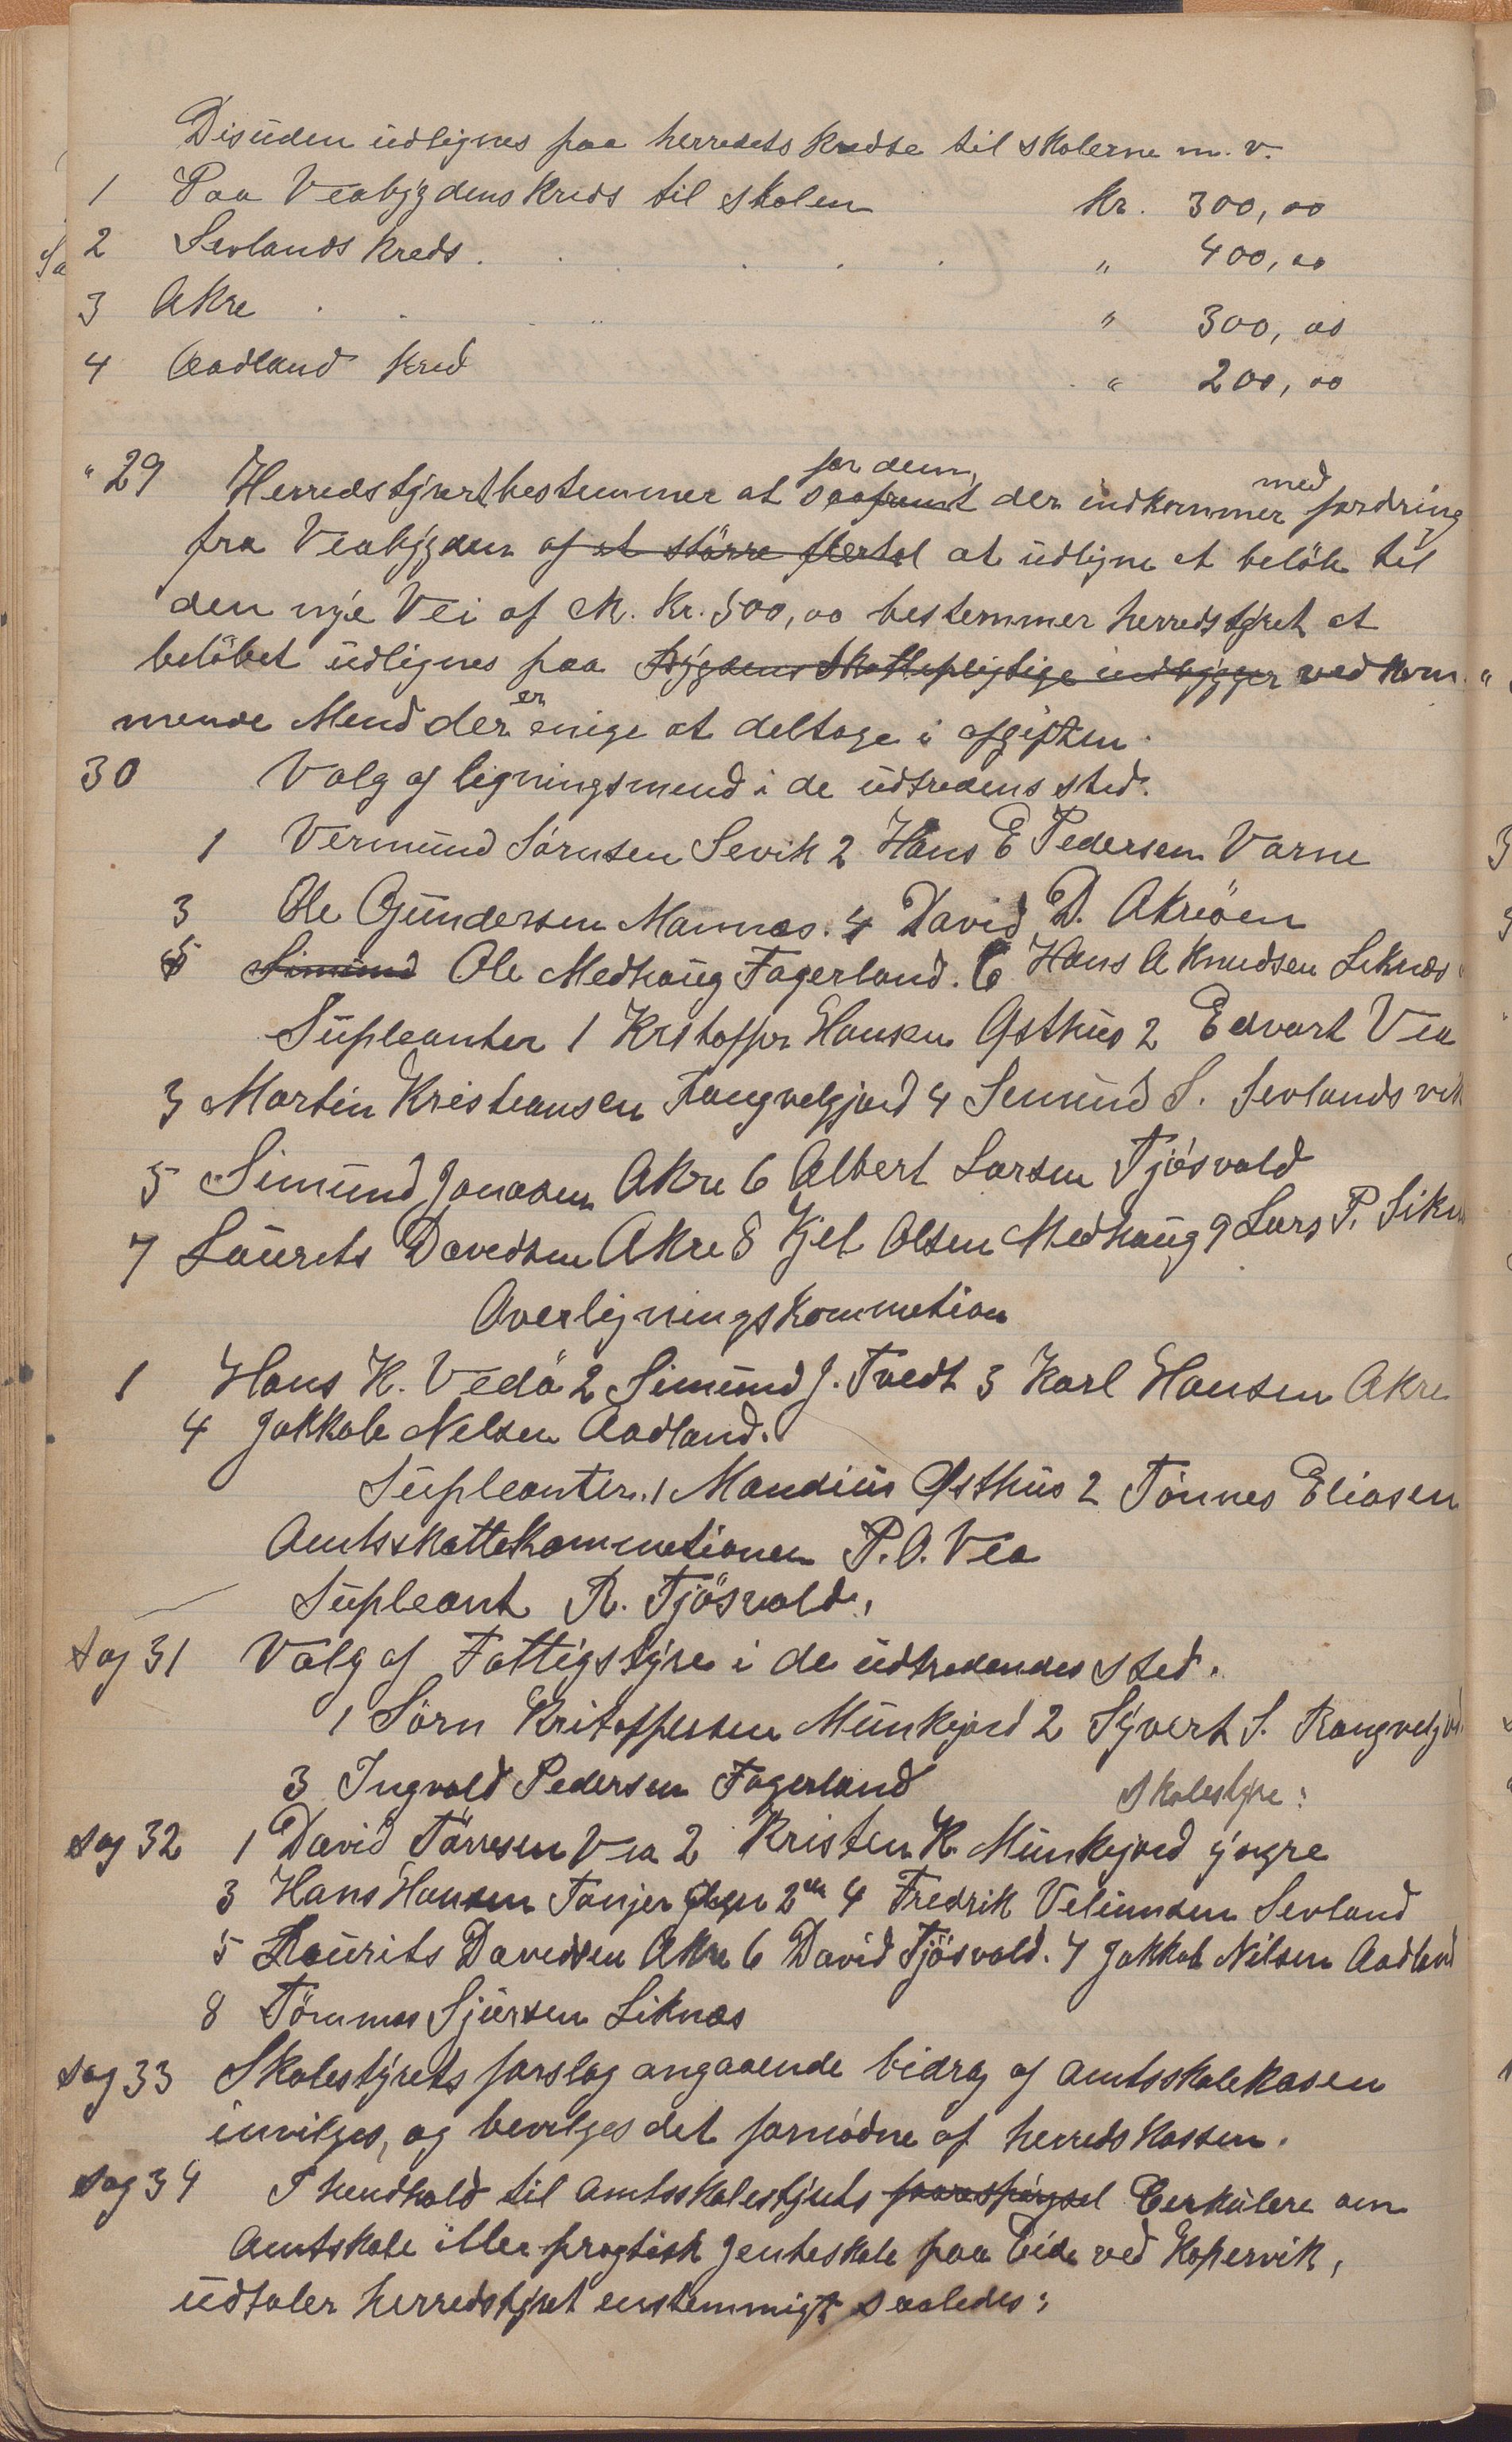 Disuden udlignes paa herredets Kredse til skolerne m. v.
1 Paa Veabygdens Kreds til skolen Kr. 300,00
2 Sevlands Kreds . . . . . " 400,00
3 Akre . . . " 300,00
4 Aadland Kred " 200,00
" 29 Herredstyret bestemmer at saafremt for dem der indkommer med fordring
fra Veabygden af et större flertal at udligne et belöb til
den nye Vei af Kr. 500,00 bestemmer herredstyret at
belöbet udlignes paa Bygdens Skattepligtige indbygger ved kom
mende Mend der er enige at deltage i afgiften.
30 Valg af ligningsmend i de udtredens sted.
1 Vermund Sörnsen Sevik 2 Hans E Pedersen Varne
3 Ole Gundersen Mannes. 4 David D. Akreöen
5 Simund Ole Medhaug Fagerland. 6 Hans A Knudsen Liknes
Supleanter 1 Kristoffer Hansen Östhus 2 Edvart Vea
3 Martin Kristiansen Fangvelgjord 4 Semund S. Sevlandsvik
5 Simund Jonasen Akre 6 Albert Larsen Tjösvold
7 Laurits Davidsen Akre 8 Kjel Olsen Medhaug 9 Lars P. Likn
Overligningskommetion
1 Hans K. Vedö 2 Simund J. Tvedt 3 Karl Hansen Akre
4 Jakkob Nelsen Aadland.
Supleanter. 1 Mandius Østhus 2 Tönnes Eliasen
Amtsskattekommetionen P. O. Vea
Supleant R. Tjösvold.
sag 31 Valg af Fattigstyre i de udtredendes sted.
1 Sörn Kritoffersen Munkejord 2 Syvert S. Rangvelj
3 Ingvald Pedersen Fagerland Skolestyre:
sag 32 1 David Törresen Vea 2 Kristen K. Munkejord yngre
3 Hans Hansen Tanjer 2en 4 Fredrik Velumsen Sevland
5 Laurits Davidsen Akre 6 David Tjösvold. 7 Jakkob Nilsen Aadland
8 Tömmes Sjursen Liknes
sag 33 Skolestyrets forslag angaaende bidrag af amtsskolekasen
invilges, og bevilges det fornødne af herreds Kassen.
sag 34 I hendhold til amtsskolestyrets foorespörgsel Cerkulere om
Amtskole iller pragtisk Jenteskole paa Eide ved Kopervik,
udtaler herredstyret enstemmigt saaledes: